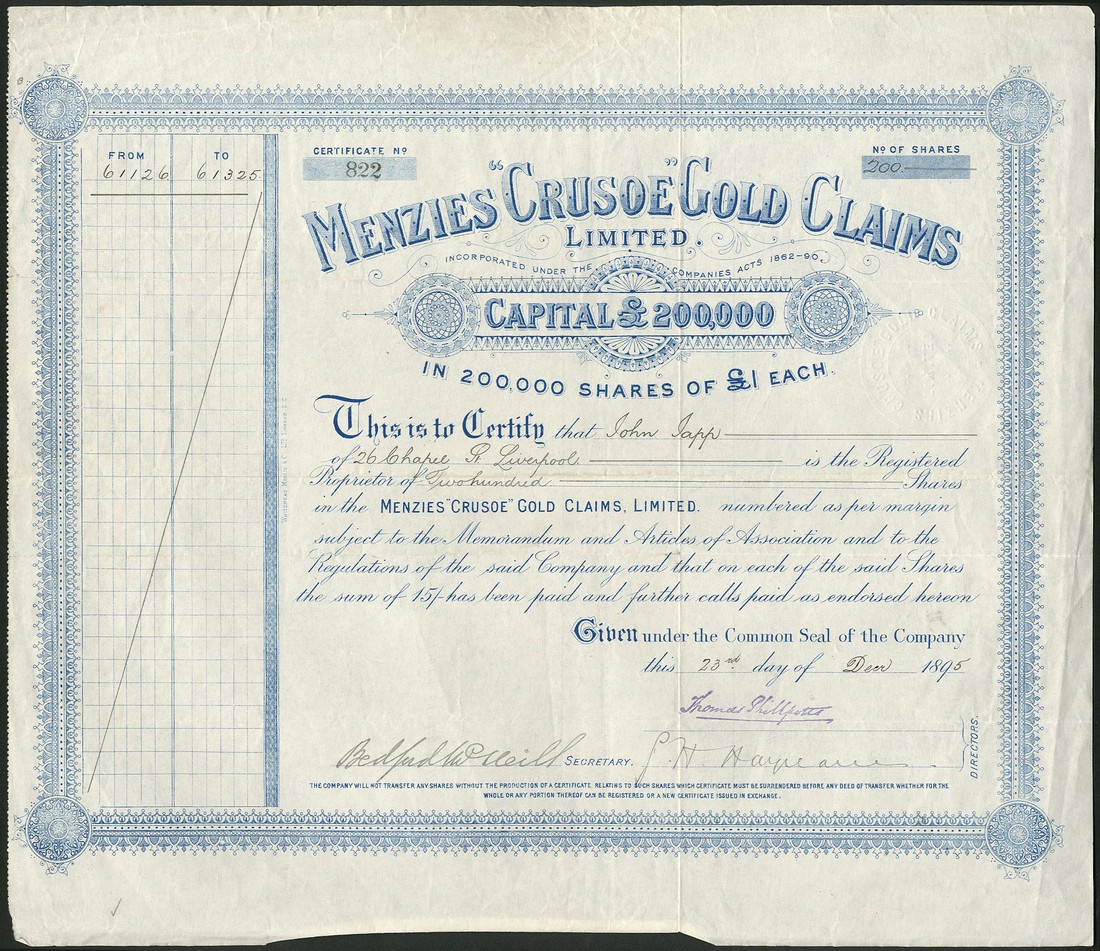 FROM TO
61126 61325
CERTIFICATE Nº
822
Nº OF SHARES
200
MENZIES "CRUSOE" GOLD CLAIMS
LIMITED.
INCORPORATED UNDER THE COMPANIES ACTS 1862-90.
CAPITAL £200,000
IN 200,000 SHARES OF £1 EACH.
This is to Certify that John Japp
of 26 Chapel St Liverpool is the Registered
Proprietor of Two hundred Shares
in the MENZIES "CRUSOE" GOLD CLAIMS, LIMITED. numbered as per margin
subject to the Memorandum and Articles of Association and to the
Regulations of the said Company and that on each of the said Shares
the sum of 15/- has been paid and further calls paid as endorsed hereon
Given under the Common Seal of the Company
this 23rd day of Decr 1895
Thomas Phillpotts
Bedford McNeill SECRETARY.
DIRECTORS.
THE COMPANY WILL NOT TRANSFER ANY SHARES WITHOUT THE PRODUCTION OF A CERTIFICATE RELATING TO SUCH SHARES WHICH CERTIFICATE MUST BE SURRENDERED BEFORE ANY DEED OF TRANSFER WHETHER FOR THE
WHOLE OR ANY PORTION THEREOF CAN BE REGISTERED OR A NEW CERTIFICATE ISSUED IN EXCHANGE.